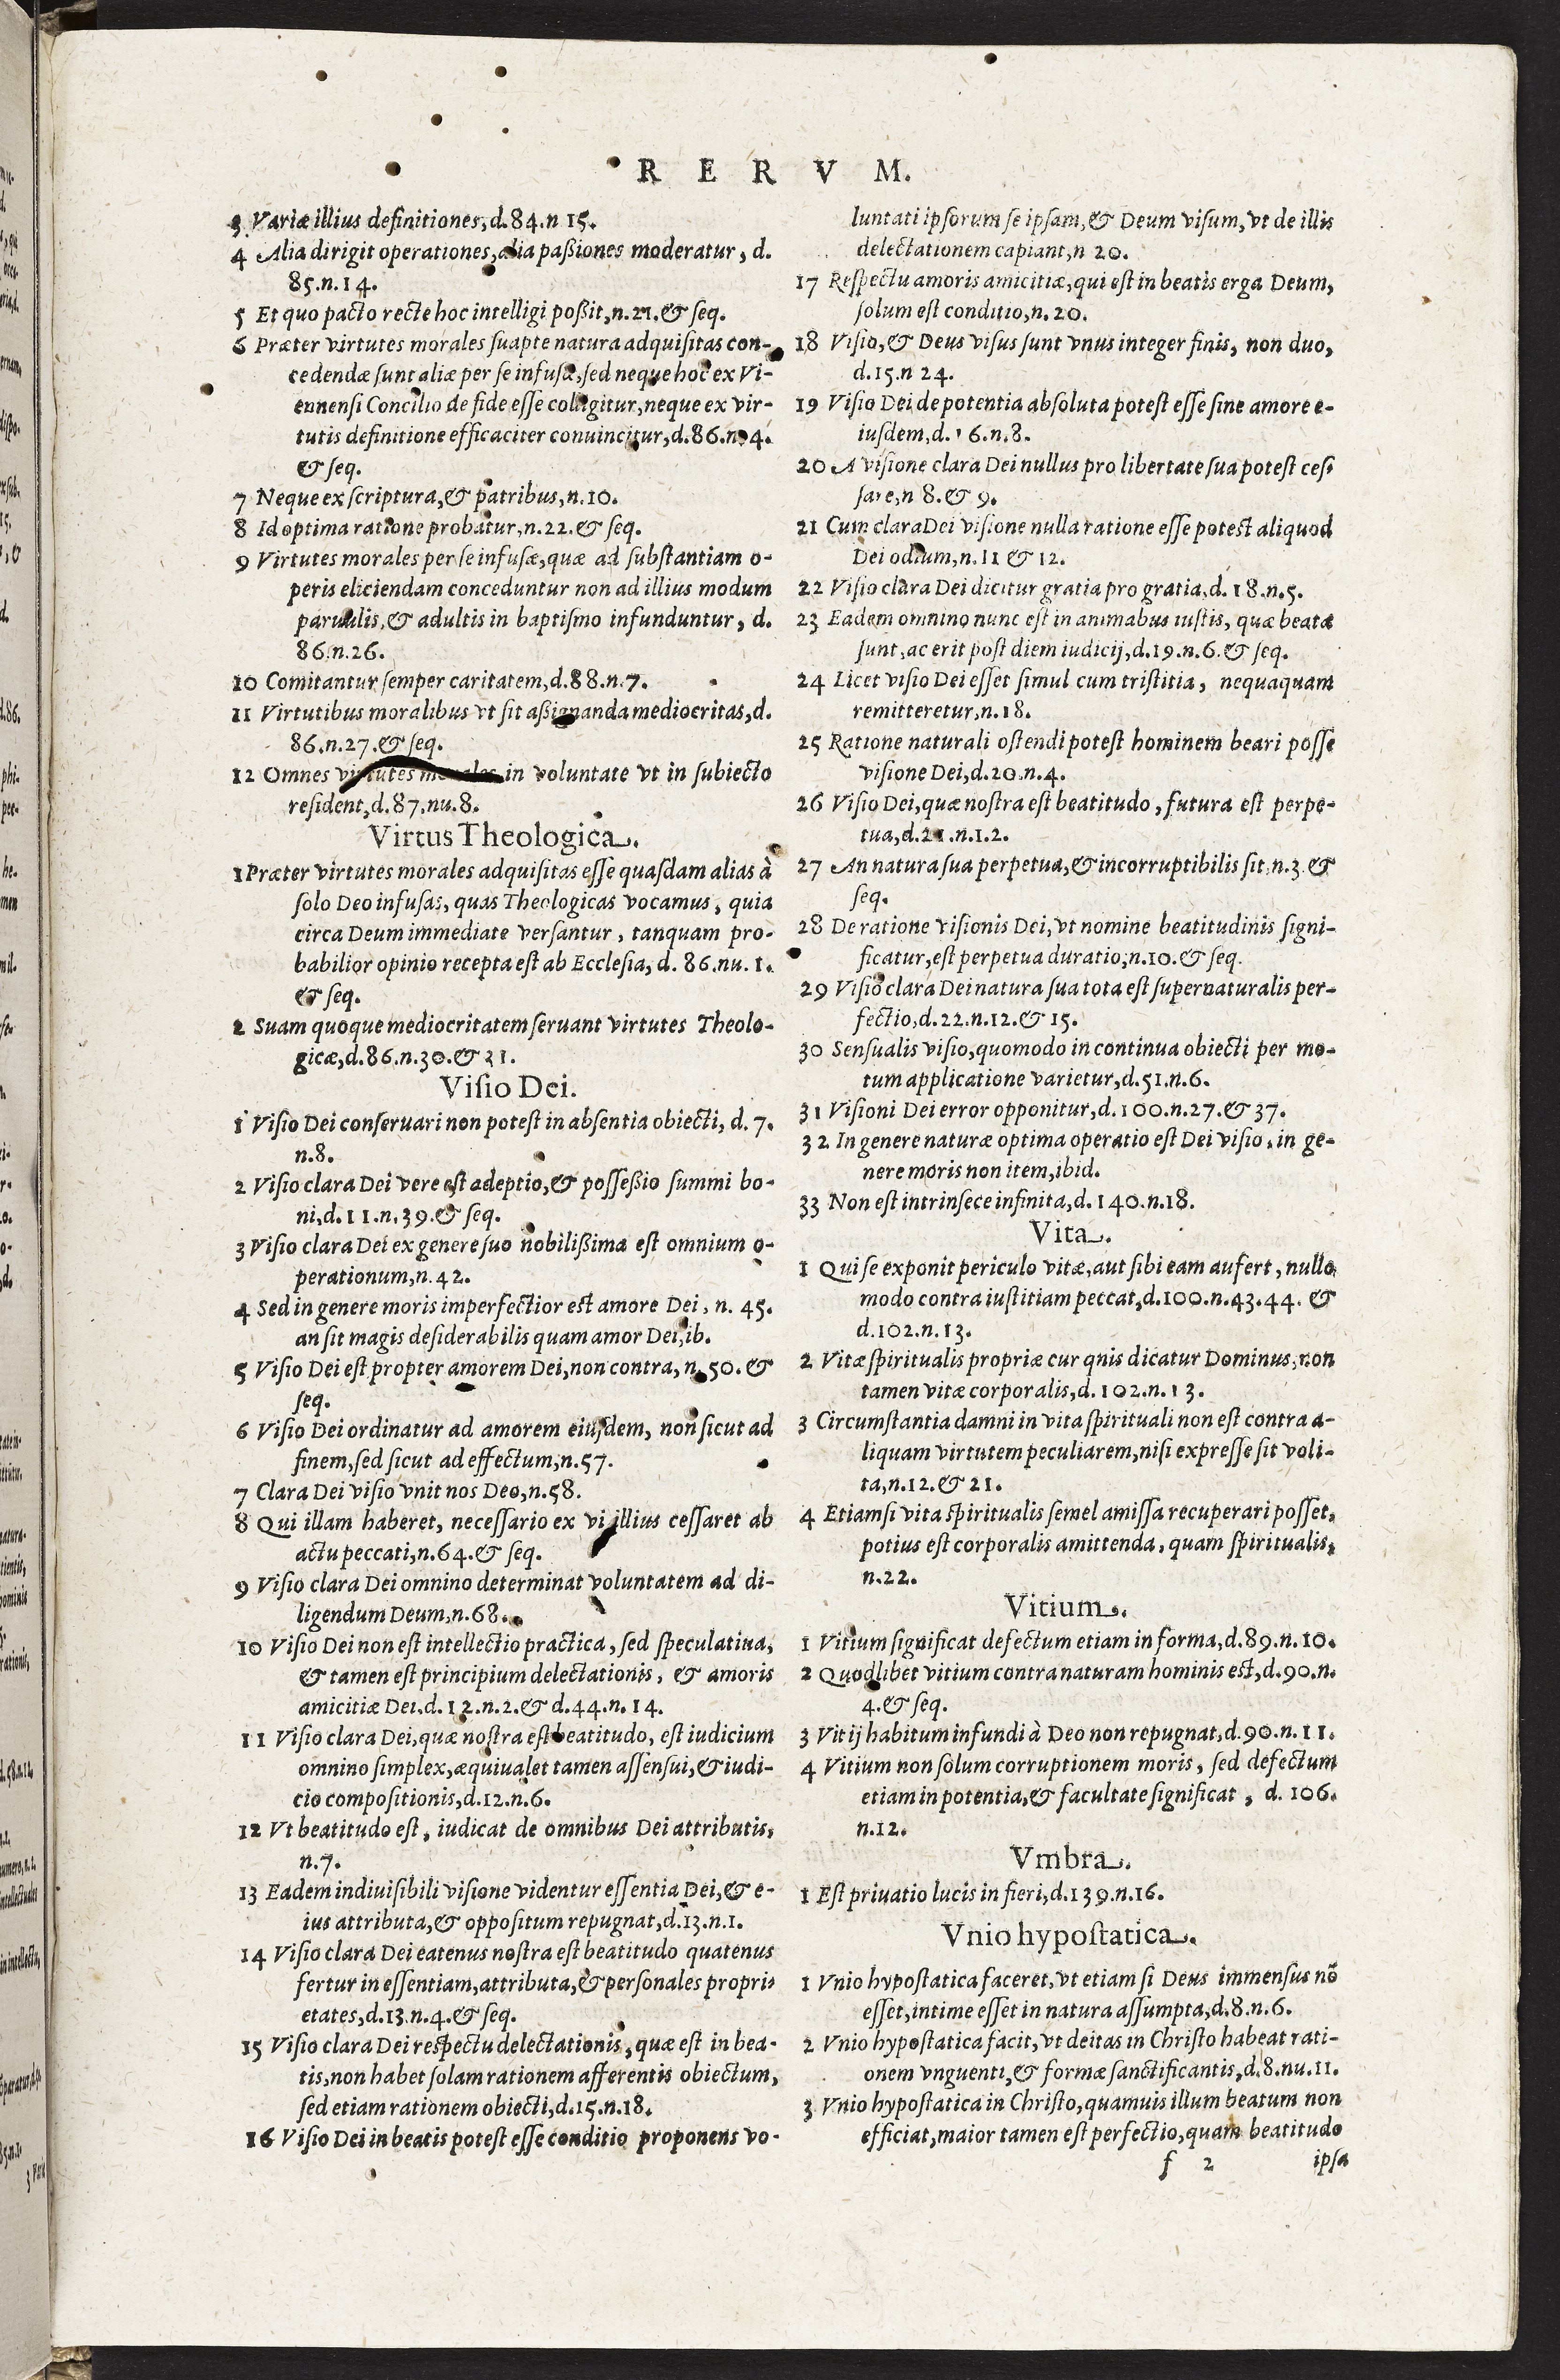 R E R V M.
3 Variæ illius definitiones, d.84.n 15.
4 Alia dirigit operationes, alia paßiones moderatur, d.
85.n.14.
5 Et quo pacto recte hoc intelligi poßit, n.21. & seq.
6 Præter virtutes morales suapte natura adquisitas con-
cedendæ sunt aliæ per se infusæ, sed neque hoc ex Vi-
ennensi Concilio de fide esse colligitur, neque ex vir-
tutis definitione efficaciter conuincitur, d.86.n.4.
& seq.
7 Neque ex scriptura, & patribus, n.10.
8 Id optima ratione probatur, n.22. & seq.
9 Virtutes morales per se infusæ, quæ ad substantiam o-
peris eliciendam conceduntur non ad illius modum
paruulis, & adultis in baptismo infunduntur, d.
86.n.26.
10 Comitantur semper caritatem, d.88.n.7.
11 Virtutibus moralibus vt sit aßignanda mediocritas, d.
86.n.27. & seq.
12 Omnes virtutes morales in voluntate vt in subiecto
resident, d.87.nu.8.
Virtus Theologica.
1 Præter virtutes morales adquisitas esse quasdam alias à
solo Deo infusas, quas Theologicas vocamus, quia
circa Deum immediate versantur, tanquam pro-
babilior opinio recepta est ab Ecclesia, d. 86.nu. 1.
& seq.
2 Suam quoque mediocritatem seruant virtutes Theolo-
gicæ, d.86.n.30. & 31.
Visio Dei.
1 Visio Dei conseruari non potest in absentia obiecti, d. 7.
n.8.
2 Visio clara Dei vere est adeptio, & posseßio summi bo-
ni, d.11.n.39. & seq.
3 Visio clara Dei ex genere suo nobilißima est omnium o-
perationum, n.42.
4 Sed in genere moris imperfectior est amore Dei, n. 45.
an sit magis desiderabilis quam amor Dei, ib.
5 Visio Dei est propter amorem Dei, non contra, n.50. &
seq.
6 Visio Dei ordinatur ad amorem eiusdem, non sicut ad
finem, sed sicut ad effectum, n.57.
7 Clara Dei visio vnit nos Deo, n.58.
8 Qui illam haberet, necessario ex vi illius cessaret ab
actu peccati, n.64. & seq.
9 Visio clara Dei omnino determinat voluntatem ad di-
ligendum Deum, n.68.
10 Visio Dei non est intellectio practica, sed speculatiua,
& tamen est principium delectationis, & amoris
amicitiæ Dei, d.12.n.2. & d.44.n.14.
11 Visio clara Dei, quæ nostra est beatitudo, est iudicium
omnino simplex, æquiualet tamen assensui, & iudi-
cio compositionis, d.12.n.6.
12 Vt beatitudo est, iudicat de omnibus Dei attributis,
n.7.
13 Eadem indiuisibili visione videntur essentia Dei, & e-
ius attributa, & oppositum repugnat, d.13.n.1.
14 Visio clara Dei eatenus nostra est beatitudo quatenus
fertur in essentiam, attributa, & personales propri-
etates, d.13.n.4. & seq.
15 Visio clara Dei respectu delectationis, quæ est in bea-
tis, non habet solam rationem afferentis obiectum,
sed etiam rationem obiecti, d.15.n.18.
16 Visio Dei in beatis potest esse conditio proponens vo-
luntati ipsorum se ipsam, & Deum visum, vt de illis
delectationem capiant, n 20.
17 Respectu amoris amicitiæ, qui est in beatis erga Deum,
solum est conditio, n.20.
18 Visio, & Deus visus sunt vnus integer finis, non duo,
d.15.n 24.
19 Visio Dei de potentia absoluta potest esse sine amore e-
iusdem, d.16.n.8.
20 A visione clara Dei nullus pro libertate sua potest ces-
sare, n 8. & 9.
21 Cum clara Dei visione nulla ratione esse potest aliquod
Dei odium, n.11 & 12.
22 Visio clara Dei dicitur gratia pro gratia, d.18.n.5.
23 Eadem omnino nunc est in animabus iustis, quæ beatæ
sunt, ac erit post diem iudicij, d.19.n.6. & seq.
24 Licet visio Dei esset simul cum tristitia, nequaquam
remitteretur, n.18.
25 Ratione naturali ostendi potest hominem beari posse
visione Dei, d.20.n.4.
26 Visio Dei, quæ nostra est beatitudo, futura est perpe-
tua, d.21.n.1.2.
27 An natura sua perpetua, & incorruptibilis sit, n.3. &
seq.
28 De ratione visionis Dei, vt nomine beatitudinis signi-
ficatur, est perpetua duratio, n.10. & seq.
29 Visio clara Dei natura sua tota est supernaturalis per-
fectio, d.22.n.12. & 15.
30 Sensualis visio, quomodo in continua obiecti per mo-
tum applicatione varietur, d.51.n.6.
31 Visioni Dei error opponitur, d.100.n.27. & 37.
32 In genere naturæ optima operatio est Dei visio, in ge-
nere moris non item, ibid.
33 Non est intrinsece infinita, d.140.n.18.
Vita.
1 Qui se exponit periculo vitæ, aut sibi eam aufert, nullo
modo contra iustitiam peccat, d.100.n.43.44. &
d.102.n.13.
2 Vitæ spiritualis propriæ cur qnis dicatur Dominus, non
tamen vitæ corporalis, d.102.n.13.
3 Circumstantia damni in vita spirituali non est contra a-
liquam virtutem peculiarem, nisi expresse sit voli-
ta, n.12. & 21.
4 Etiamsi vita spiritualis semel amissa recuperari posset,
potius est corporalis amittenda, quam spiritualis,
n.22.
Vitium.
1 Vitium significat defectum etiam in forma, d.89.n.10.
2 Quodlibet vitium contra naturam hominis est, d.90.n.
4. & seq.
3 Vitij habitum infundi à Deo non repugnat, d.90.n.11.
4 Vitium non solum corruptionem moris, sed defectum
etiam in potentia, & facultate significat, d. 106.
n.12.
Vmbra.
1 Est priuatio lucis in fieri, d.139.n.16.
Vnio hypostatica.
1 Vnio hypostatica faceret, vt etiam si Deus immensus nō
esset, intime esset in natura assumpta, d.8.n.6.
2 Vnio hypostatica facit, vt deitas in Christo habeat rati-
onem vnguenti, & formæ sanctificantis, d.8.nu.11.
3 Vnio hypostatica in Christo, quamuis illum beatum non
efficiat, maior tamen est perfectio, quam beatitudo
f 2 ipsa